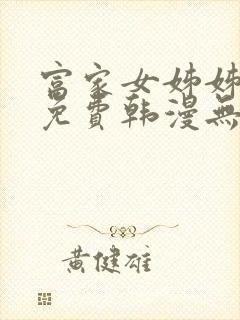 富家女姊姊
免費韩漫無
黃健雄